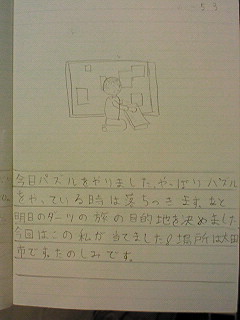 53
今日パズルをやりました。やっぱりパズル
をやっている時は落ちつきます。あと
明日のダーツの旅の目的地を決めました
今回はこの私が当てました♪場所は太田
市です。たのしみです。